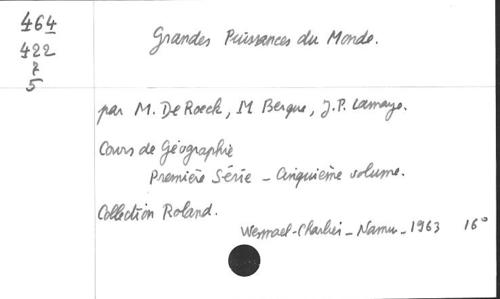 464
422
7
5
Grandes Puissances du Monde.
par M. De Roeck, M Bergue, J.P. Lamaye.
Cours de Géographie
Première Série - Cinquième volume.
Collection Roland.
Wesmael-Charlier - Namur - 1963 16°